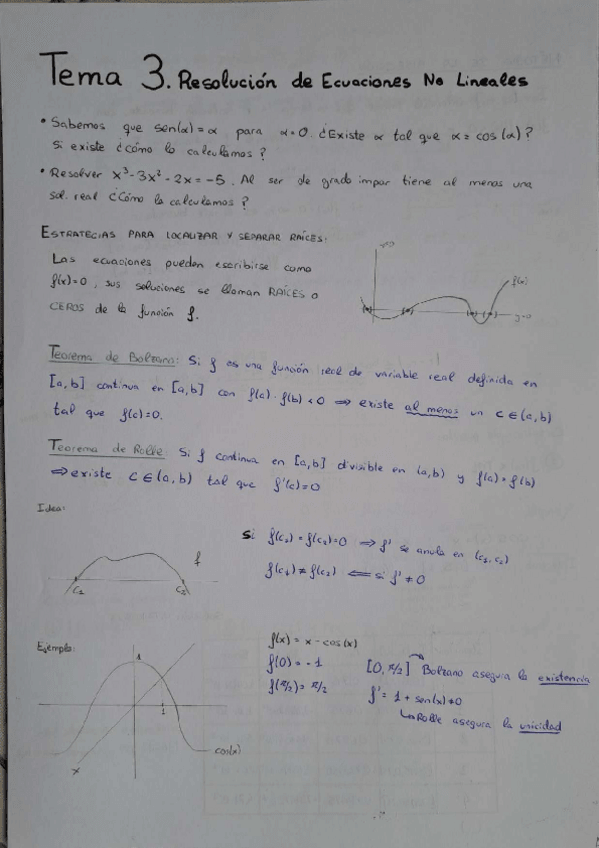 Tema 3. Resolución de Ecuaciones No Lineales
• Sabemos que sen(α) = α para α=0. ¿Existe α tal que α = cos(α)?
Si existe ¿cómo lo calculamos?
• Resolver x³-3x²-2x=-5. Al ser de grado impar tiene al menos una
sol. real ¿Cómo la calculamos?
ESTRATEGIAS PARA LOCALIZAR Y SEPARAR RAÍCES:
Las ecuaciones pueden escribirse como
f(x)=0, sus soluciones se llaman RAÍCES O
CEROS de la función f.
x=0
f(x)
y=0
Teorema de Bolzano: Si f es una función real de variable real definida en
[a,b] continua en [a,b] con f(a)·f(b)<0 ⇒ existe al menos un c∈(a,b)
tal que f(c)=0.
Teorema de Rolle: Si f continua en [a,b] divisible en (a,b) y f(a)=f(b)
⇒ existe c∈(a,b) tal que f'(c)=0
Idea:
f
C₁
C₂
Si f(c₁)=f(c₂)=0 ⇒ f' se anula en (c₁,c₂)
f(c₁)≠f(c₂) ⇐ si f'≠0
Ejemplo:
1
1
x
cos(x)
f(x) = x - cos(x)
f(0) = -1
f(π/2) = π/2
[0,π/2] Bolzano asegura la existencia
f' = 1 + sen(x) ≠ 0
↳ Rolle asegura la unicidad